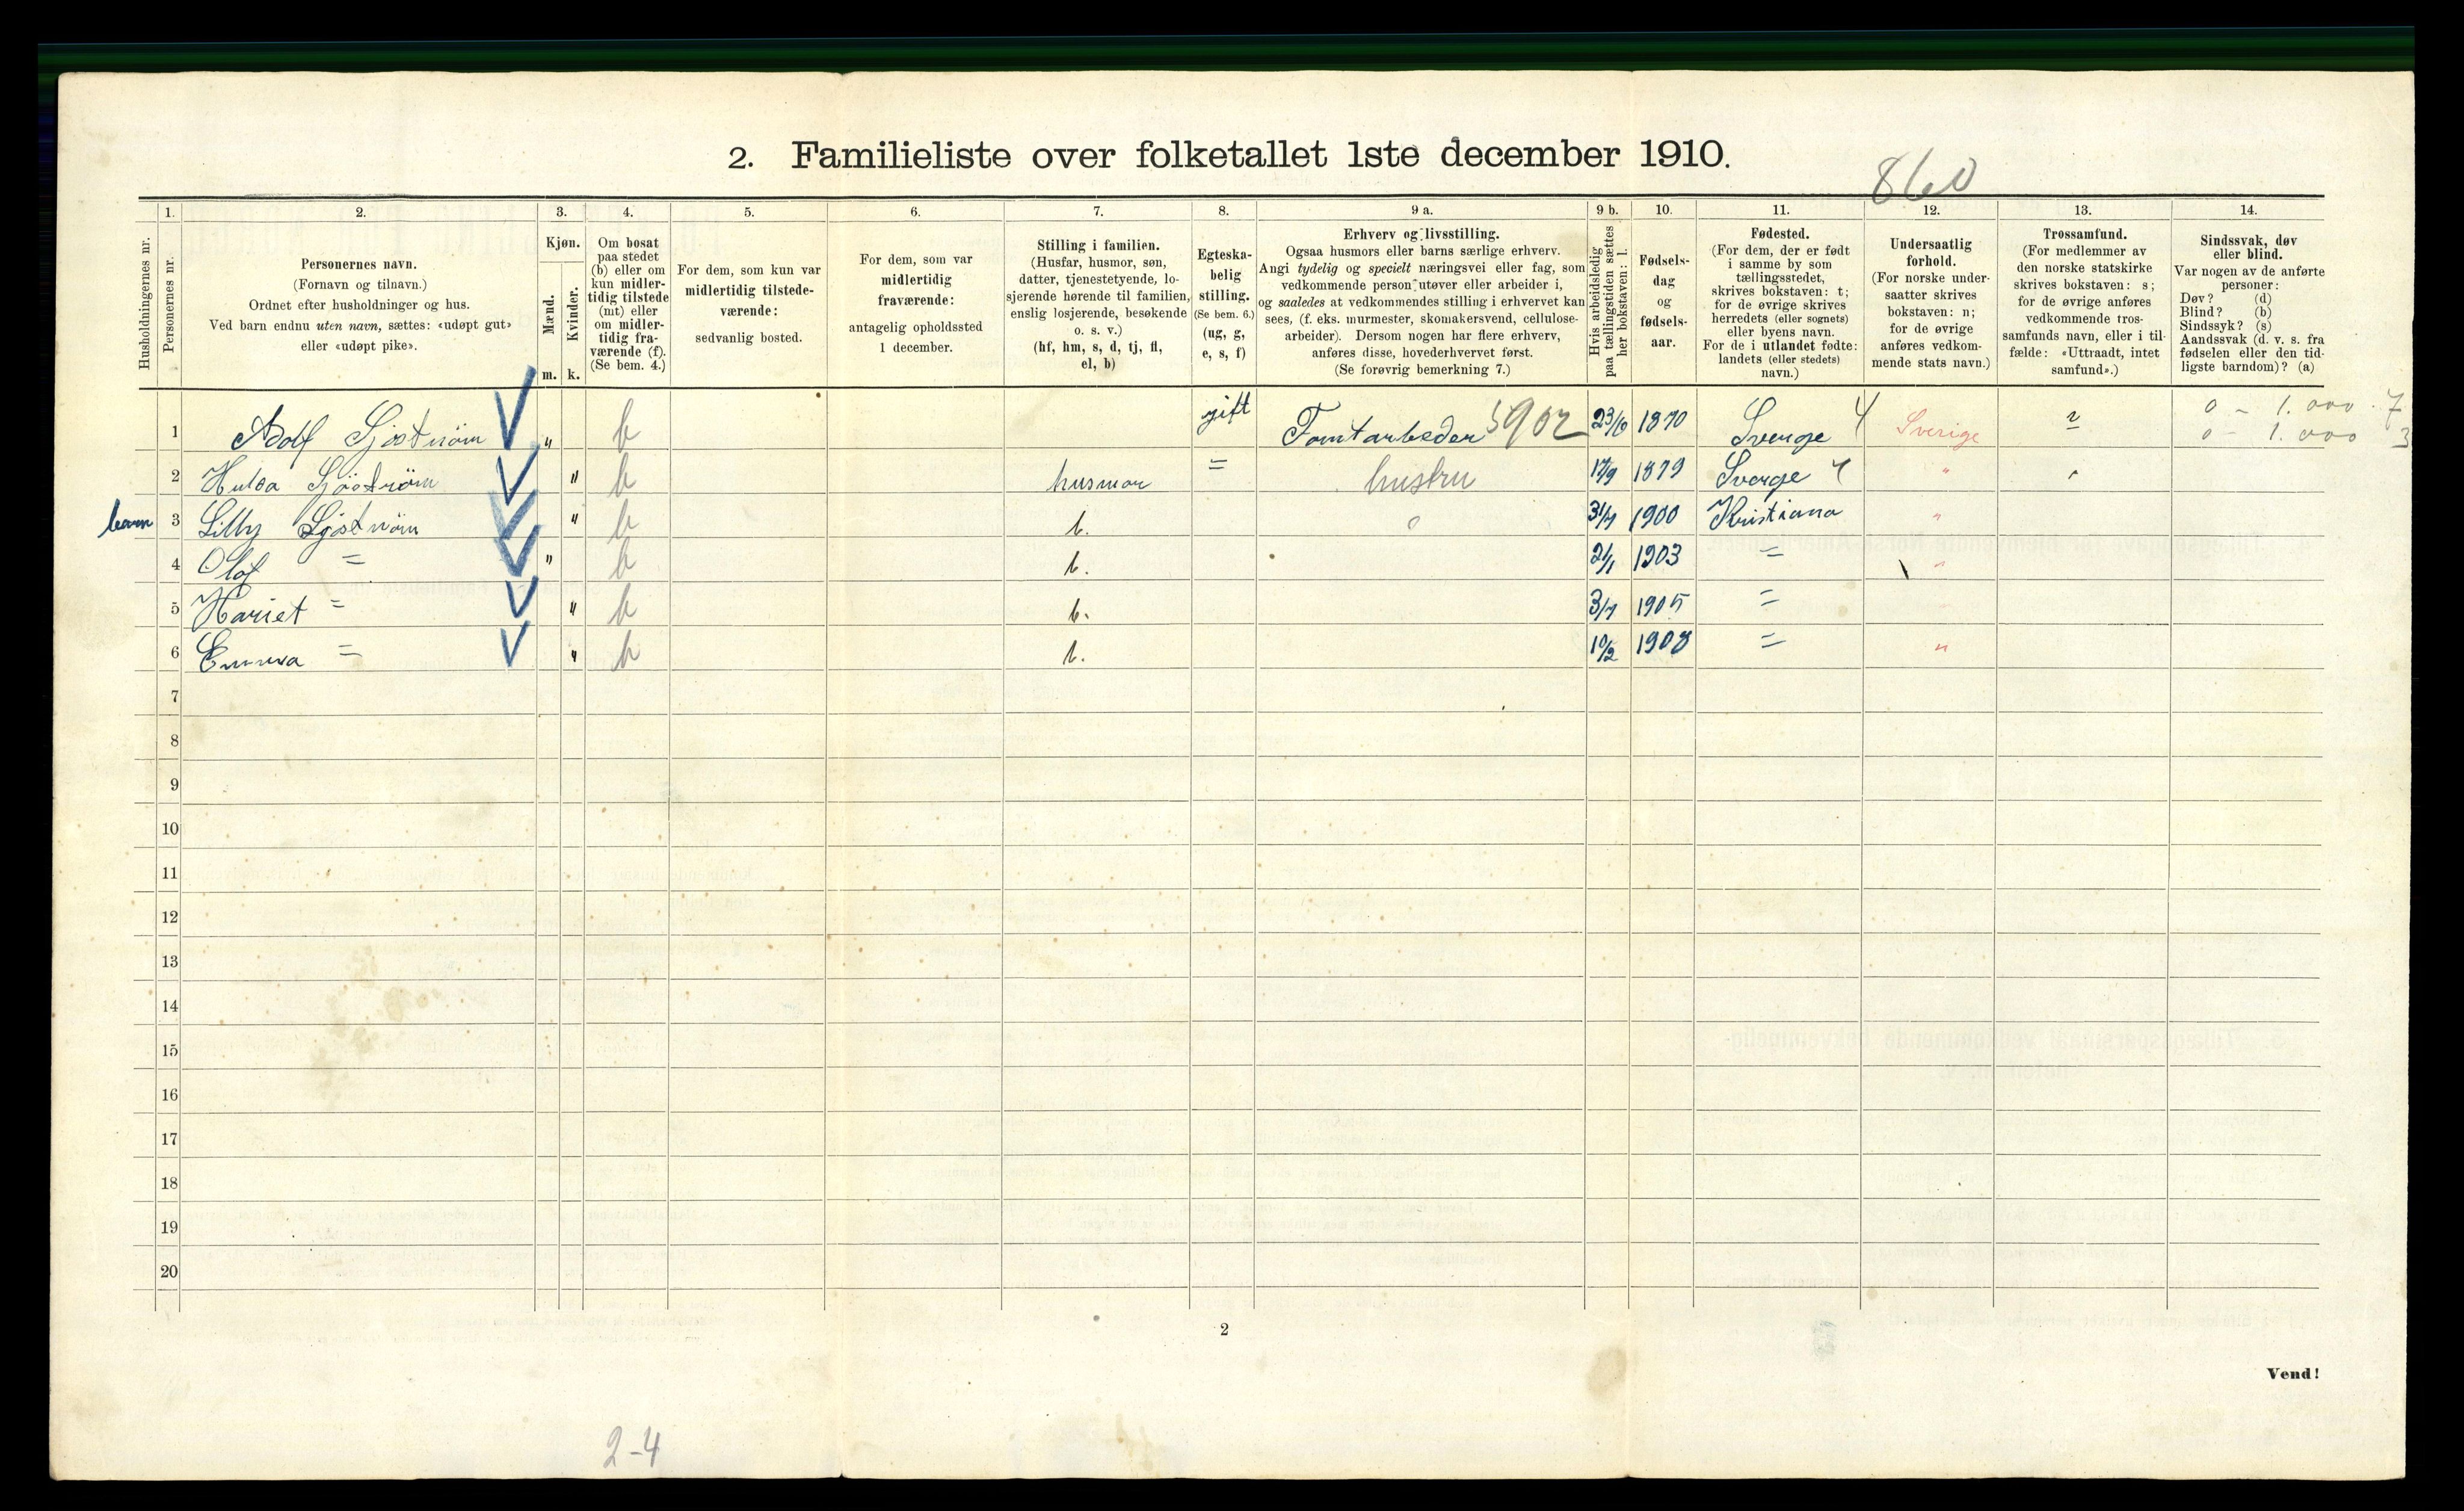 2. Familieliste over folketallet 1ste december 1910.
860
1. 2. 3. 4. 5. 6. 7. 8. 9 a. 9 b. 10. 11. 12. 13. 14.
Husholdningernes nr.
Personernes nr.
Personernes navn.
(Fornavn og tilnavn.)
Ordnet efter husholdninger og hus.
Ved barn endnu uten navn, sættes: «udøpt gut»
eller «udøpt pike».
Kjøn.
Mænd.
Kvinder.
m. k.
Om bosat
paa stedet
(b) eller om
kun midler-
tidig tilstede
(mt) eller
om midler-
tidig fra-
værende (f).
(Se bem. 4.)
For dem, som kun var
midlertidig tilstede-
værende:
sedvanlig bosted.
For dem, som var
midlertidig
fraværende:
antagelig opholdssted
1 december.
Stilling i familien.
(Husfar, husmor, søn,
datter, tjenestetyende, lo-
sjerende hørende til familien,
enslig losjerende, besøkende
o. s. v.)
(hf, hm, s, d, tj, fl,
el, b)
Egteska-
belig
stilling.
(Se bem. 6.)
(ug, g,
e, s, f)
Erhverv og livsstilling.
Ogsaa husmors eller barns særlige erhverv.
Angi tydelig og specielt næringsvei eller fag, som
vedkommende person utøver eller arbeider i,
og saaledes at vedkommendes stilling i erhvervet kan
sees, (f. eks. murmester, skomakersvend, cellulose-
arbeider). Dersom nogen har flere erhverv,
anføres disse, hovederhvervet først.
(Se forøvrig bemerkning 7.)
Hvis arbeidsledig
paa tællingstiden sættes
her bokstaven: l.
Fødsels-
dag
og
fødsels-
aar.
Fødested.
(For dem, der er født
i samme by som
tællingsstedet,
skrives bokstaven: t;
for de øvrige skrives
herredets (eller sognets)
eller byens navn.
For de i utlandet fødte:
landets (eller stedets)
navn.)
Undersaatlig
forhold.
(For norske under-
saatter skrives
bokstaven: n;
for de øvrige
anføres vedkom-
mende stats navn.)
Trossamfund.
(For medlemmer av
den norske statskirke
skrives bokstaven: s;
for de øvrige anføres
vedkommende tros-
samfunds navn, eller i til-
fælde: «Uttraadt, intet
samfund».)
Sindssvak, døv
eller blind.
Var nogen av de anførte
personer:
Døv? (d)
Blind? (b)
Sindssyk? (s)
Aandssvak (d. v. s. fra
fødselen eller den tid-
ligste barndom)? (a)
1 Adolf Sjøstrøm " b gift Tomtarbeder 5902 23/6 1870 Sverge 4 Sverige 0 - 1.000 7
0 - 1.000 3
2 Hulda Sjöström " b husmor = hustru 17/9 1879 Sverge 4 "
barn 3 Lilly Sjöström " b b. 0 31/7 1900 Kristiana "
4 Olof = " b b. 2/1 1903 = "
5 Hariet = " b b. 3/7 1905 =
6 Emma = " b b. 10/2 1908 = "
7
8
9
10
11
12
13
14
15
16
17
18
19
20
2
Vend!
2-4